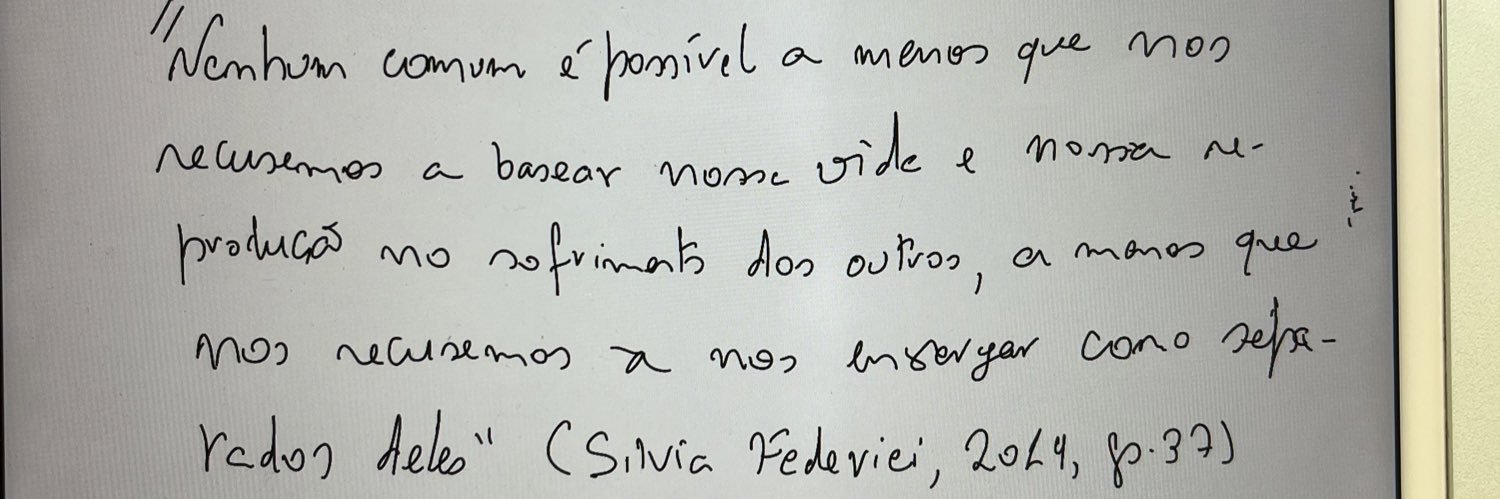 "Nenhum comum é possível a menos que nos
recusemos a basear nossa vida e nossa re-
produção no sofrimento dos outros, a menos que
nos recusemos a nos enxergar como sepa-
rados deles" (Silvia Federici, 2014, p.37)